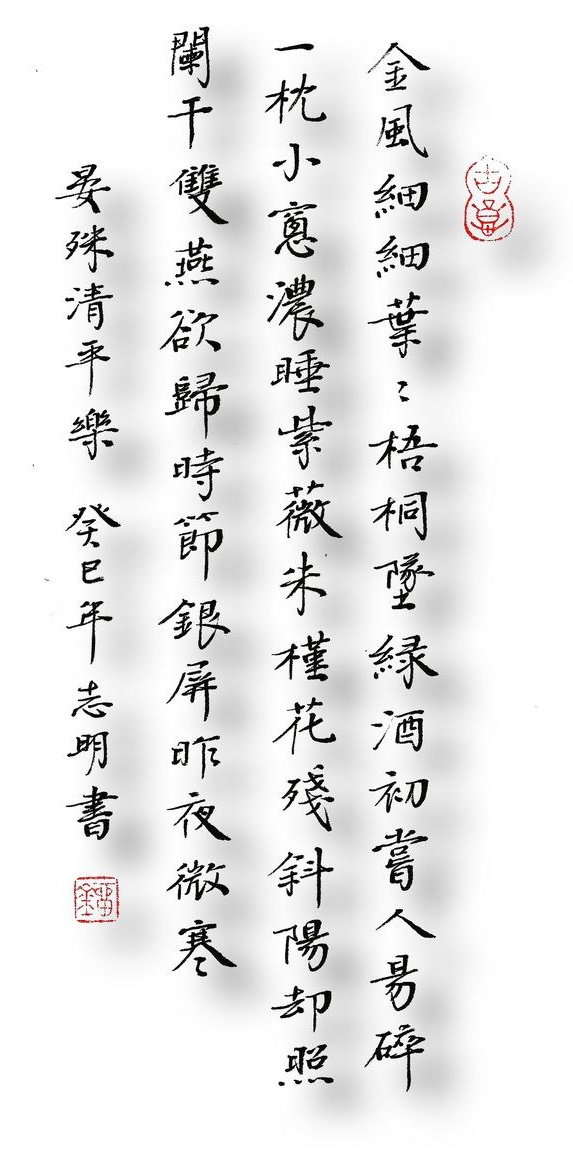 金風細細葉〻梧桐墜緑酒初嘗人易碎
一枕小窻濃睡紫薇朱槿花殘斜陽却照
闌干雙燕欲歸時節銀屏昨夜微寒
晏殊清平樂 癸巳年志明書